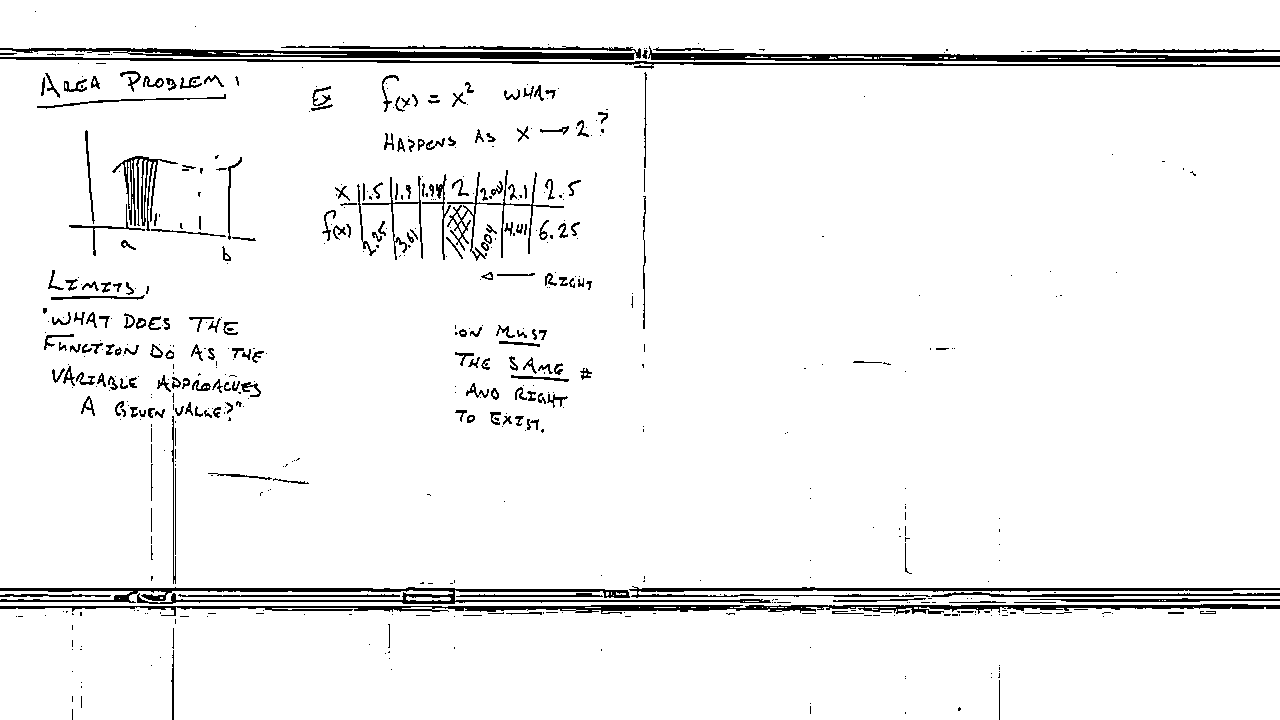 AREA PROBLEM:
a b
LIMITS:
"WHAT DOES THE
FUNCTION DO AS THE
VARIABLE APPROACHES
A GIVEN VALUE?"
EX f(x) = x² WHAT
HAPPENS AS X → 2?
X 1.5 1.9 2 2.1 2.5
f(x) 2.25 3.61 4.004 4.41 6.25
← RIGHT
MUST
THE SAME #
AND RIGHT
TO EXIST.